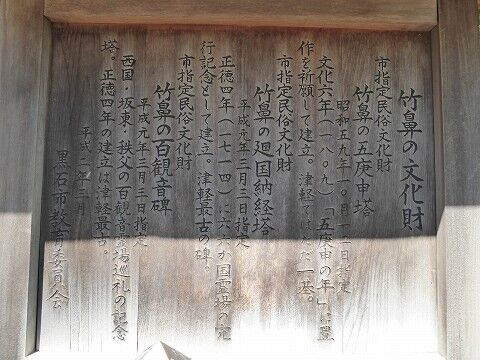 竹鼻の文化財
市指定民俗文化財
竹鼻の五庚申塔
昭和五九年一〇月一二日指定
文化六年(一八〇九)「五庚申の年」に豊
作を祈願して建立。津軽ではただ一基。
市指定民俗文化財
竹鼻の廻国納経塔
平成元年三月三日指定
正徳四年(一七一四)に六六か国霊場の
行記念として建立。津軽最古の碑。
市指定民俗文化財
竹鼻の百観音碑
平成元年三月三日指定
西国・坂東・秩父の百観音霊場巡礼の記念
塔。正徳四年の建立は津軽最古。
平成二年三月
黒石市教育委員会